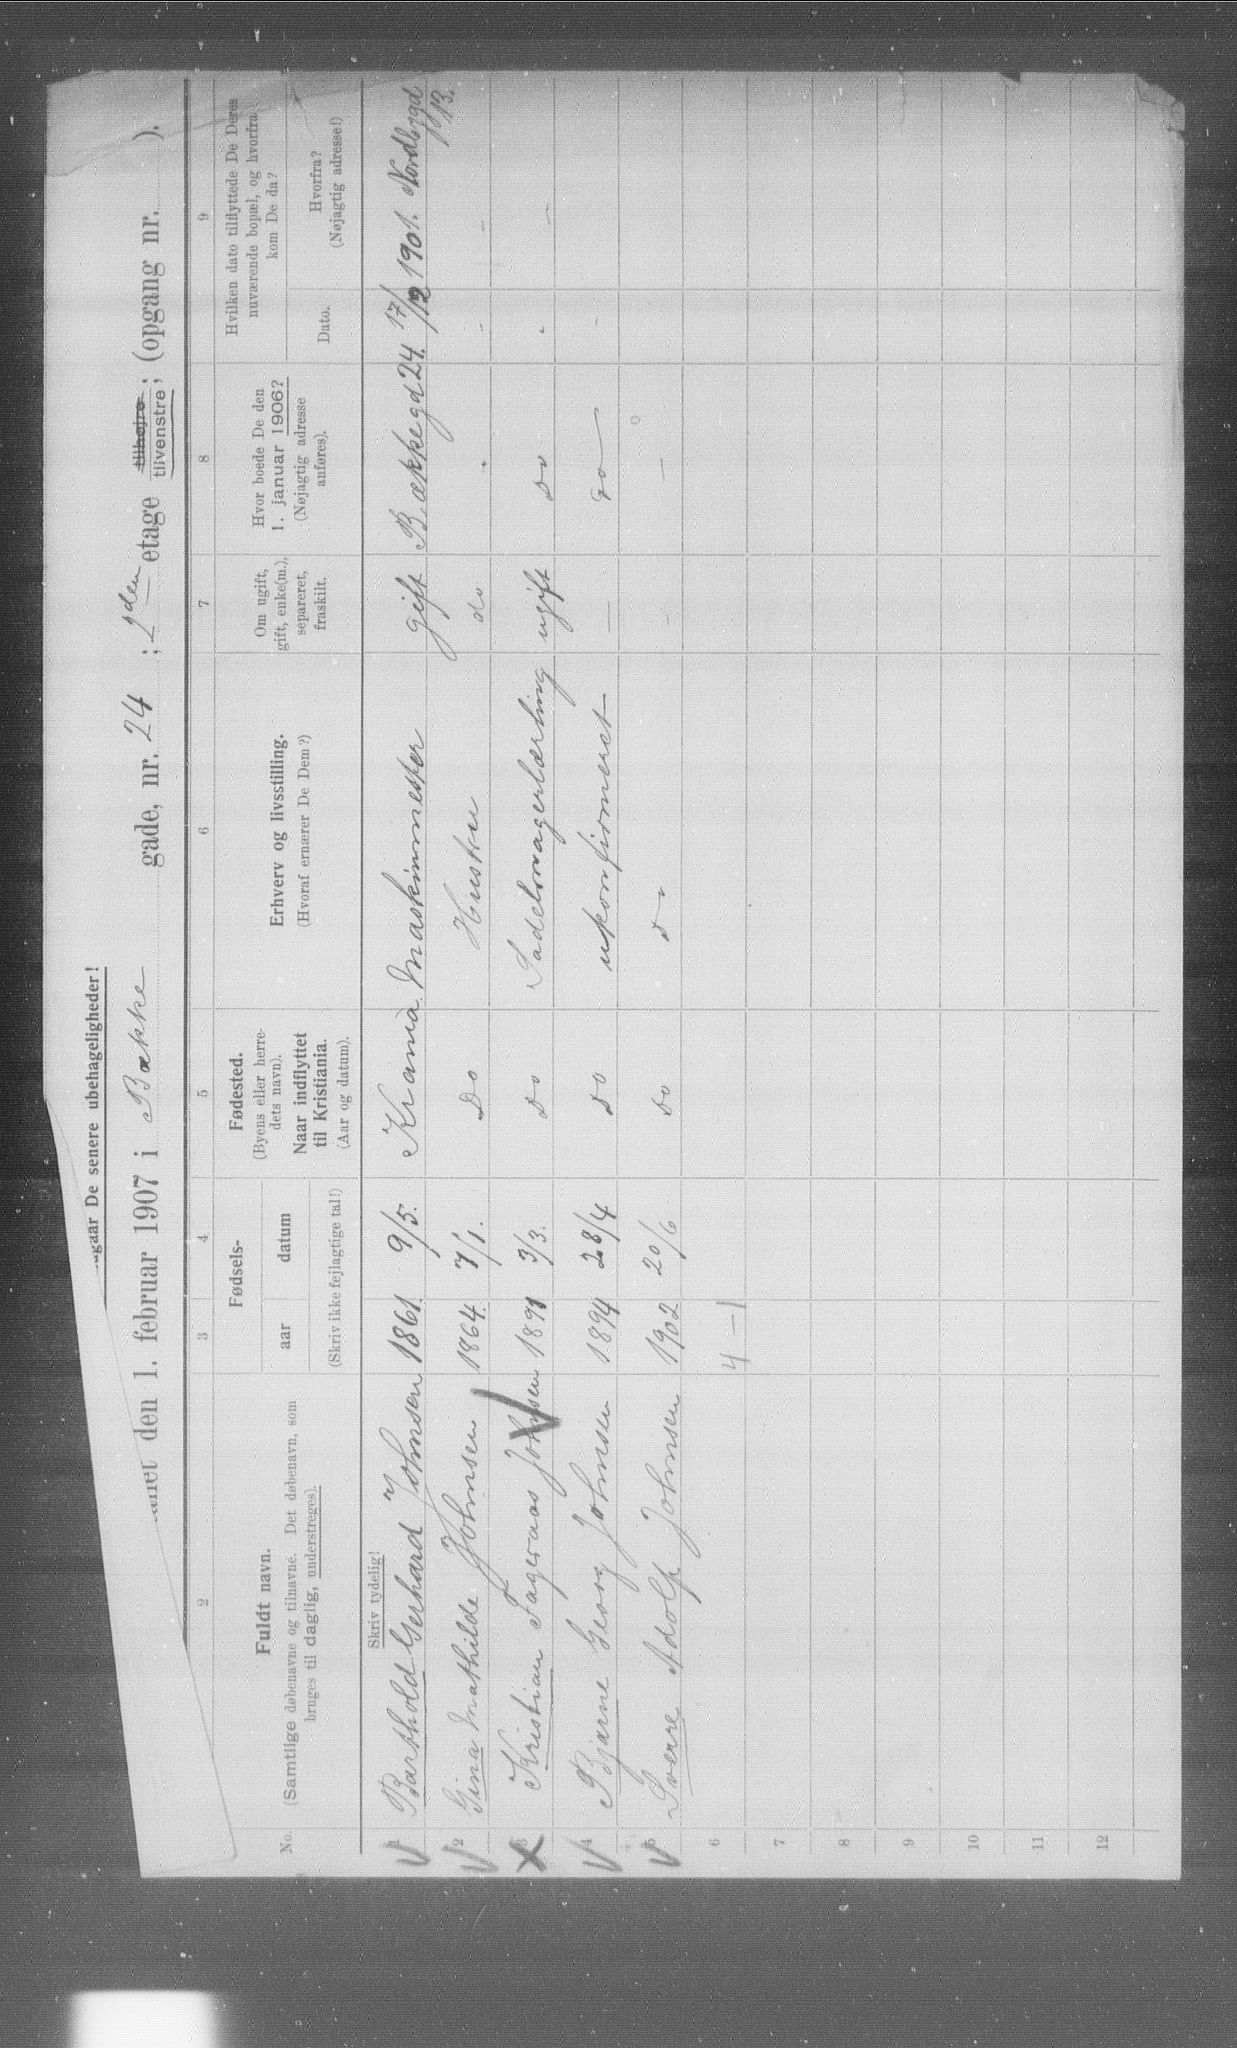 De senere ubehageligheder!
den 1. februar 1907 i Bække gade, nr. 24 ; 2den etage tilhøjre tilvenstre; (opgang nr. ).
2 3 4 5 6 7 8 9
No.
Fuldt navn.
(Samtlige døbenavne og tilnavne. Det døbenavn, som
bruges til daglig, understreges).
Fødsels-
aar datum
(Skriv ikke fejlagtige tal!)
Fødested.
(Byens eller herre-
dets navn).
Naar indflyttet
til Kristiania.
(Aar og datum).
Erhverv og livsstilling.
(Hvoraf ernærer De Dem?)
Om ugift,
gift, enke(m.),
separeret,
fraskilt.
Hvor boede De den
1. januar 1906?
(Nøjagtig adresse
anføres).
Hvilken dato tilflyttede De Deres
nuværende bopæl, og hvorfra
kom De da?
Dato.
Hvorfra?
(Nøjagtig adresse!)
Skriv tydelig!
1 Barthold Gerhard Johnsen 1861. 9/5. Krania Maskinmester gift Bækkegd 24. 17/12 1901. Nordbygd 13.
2 Gina Mathilde Johnsen 1864. 7/1. Do Hustru do
3 Kristian Fageraas Johnsen 1891 3/3. Do Sadelmagerlærling ugift Do
4 Bjarne Georg Johnsen 1894 28/4 Do ukonfirmeret — Do —
5 Sverre Adolf Johnsen 1902 20/6 Do D— — —
6 4 — 1
7
8
9
10
11
12